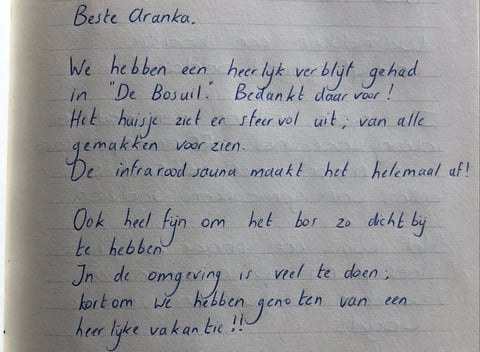 Beste Aranka.
We hebben een heerlijk verblijf gehad
in "De Bosuil." Bedankt daarvoor!
Het huisje ziet er sfeervol uit; van alle
gemakken voorzien.
De infraroodsauna maakt het helemaal af!
Ook heel fijn om het bos zo dichtbij
te hebben
In de omgeving is veel te doen;
kortom we hebben genoten van een
heerlijke vakantie!!